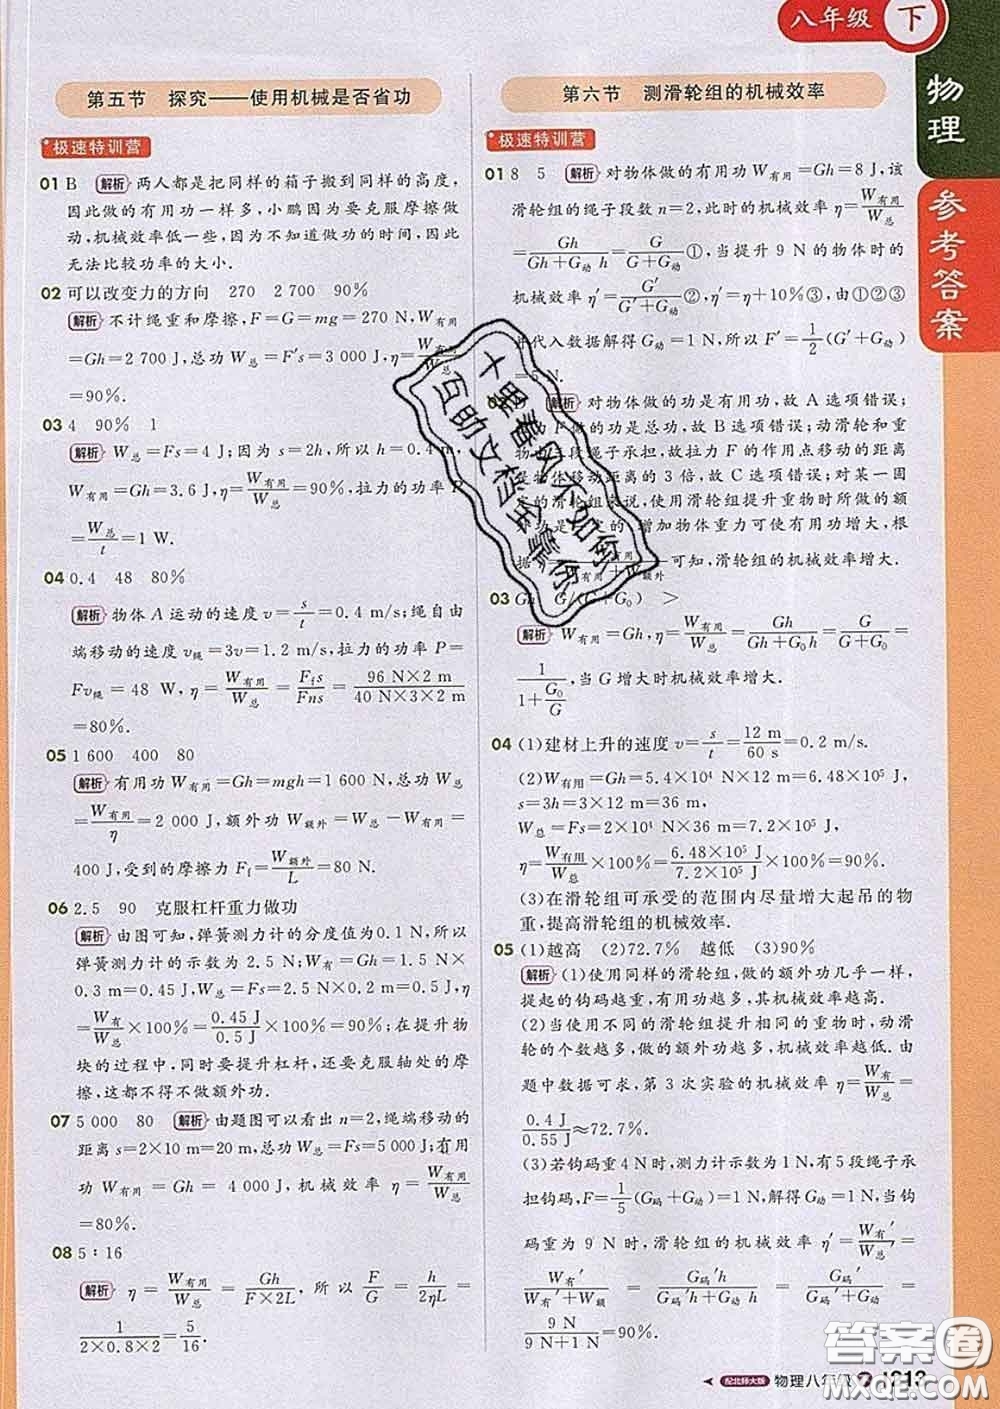 八年级 下
物理
参考答案
第五节 探究——使用机械是否省功
极速特训营
01 B 解析 两人都是把同样的箱子搬到同样的高度，
因此做的有用功一样多，小鹏因为要克服摩擦做
功，机械效率低一些，因为不知道做功的时间，因此
无法比较功率的大小.
02 可以改变力的方向 270 2 700 90%
解析 不计绳重和摩擦，F=G=mg=270 N，W有用
=Gh=2 700 J，总功 W总=F's=3 000 J，η=W有用/W总
=90%.
03 4 90% 1
解析 W总=Fs=4 J；因为 s=2h，所以 h=0.4 m，
W有用=Gh=3.6 J，η=W有用/W总=90%，拉力的功率 P
=W总/t=1 W.
04 0.4 48 80%
解析 物体 A 运动的速度 v=s/t=0.4 m/s；绳自由
端移动的速度 v绳=3v=1.2 m/s，拉力的功率 P=
Fv绳=48 W，η=W有用/W总=Ffs/Fns=96 N×2 m/40 N×3×2 m
=80%.
05 1 600 400 80
解析 有用功 W有用=Gh=mgh=1 600 N，总功 W总
=W有用/η=2 000 J，额外功 W额外=W总-W有用=
400 J，受到的摩擦力 Ff=W额外/L=80 N.
06 2.5 90 克服杠杆重力做功
解析 由图可知，弹簧测力计的分度值为0.1 N，
弹簧测力计的示数为 2.5 N；W有用=Gh=1.5 N×
0.3 m=0.45 J，W总=Fs=2.5 N×0.2 m=0.5 J，
η=W有/W总×100%=0.45 J/0.5 J×100%=90%；在提升物
块的过程中，同时要提升杠杆，还要克服轴处的摩
擦，这都不得不做额外功.
07 5 000 80 解析 由题图可以看出 n=2，绳端移动的
距离 s=2×10 m=20 m，总功 W总=Fs=5 000 J；有用
功 W有用=Gh=4 000 J，机械效率 η=W有用/W总
=80%.
08 5∶16
解析 η=W有用/W总=Gh/F×2L，所以 F/G=h/2ηL=
1/2×0.8×2=5/16.
第六节 测滑轮组的机械效率
极速特训营
01 8 5 解析 对物体做的有用功 W有用=Gh=8 J，该
滑轮组的绳子段数 n=2，此时的机械效率 η=W有用/W总
=Gh/Gh+G动h=G/G+G动①，当提升 9 N 的物体时的
机械效率 η'=G'/G'+G动②，η'=η+10%③，由①②③
代入数据解得 G动=1 N，所以 F'=1/2(G'+G动)
=5 N.
解析 对物体做的功是有用功，故 A 选项错误；
F 做的功是总功，故 B 选项错误；动滑轮和重
段绳子承担，故拉力 F 的作用点移动的距离
物体移动距离的 3 倍，故 C 选项错误；对某一固
的滑轮组来说，使用滑轮组提升重物时所做的额
功是 定的 增加物体重力可使有用功增大，根
据 可知，滑轮组的机械效率增大.
03 Gh G/(G+G0) >
解析 W有用=Gh，η=W有用/W总=Gh/Gh+G0h=G/G+G0=
1/1+G0/G，当 G 增大时机械效率增大.
04 (1)建材上升的速度 v=s/t=12 m/60 s=0.2 m/s.
(2)W有用=Gh=5.4×10⁴ N×12 m=6.48×10⁵ J，
s=3h=3×12 m=36 m，
W总=Fs=2×10⁴ N×36 m=7.2×10⁵ J，
η=W有用/W总×100%=6.48×10⁵ J/7.2×10⁵ J×100%=90%.
(3)在滑轮组可承受的范围内尽量增大起吊的物
重，提高滑轮组的机械效率.
05 (1)越高 (2)72.7% 越低 (3)90%
解析 (1)使用同样的滑轮组，做的额外功几乎一样，
提起的钩码越重，有用功越多，其机械效率越高.
(2)当使用不同的滑轮组提升相同的重物时，动滑
轮的个数越多，做的额外功越多，机械效率越低. 由
题中数据可求，第 3 次实验的机械效率 η=W有/W总=
0.4 J/0.55 J≈72.7%.
(3)若钩码重 4 N 时，测力计示数为 1 N，有5段绳子承
担钩码，F=1/5(G码+G动)=1 N，解得 G动=1 N，当钩
码重为 9 N 时，滑轮组的机械效率 η'=W有'/W总'=
W有'/W有'+W额=G码'h/G码'h+G动h=G码'/G码'+G动=
9 N/9 N+1 N=90%.
十里春风不如何
互助文档全靠你
配北师大版 物理八年级
答案圈
MXQE.COM